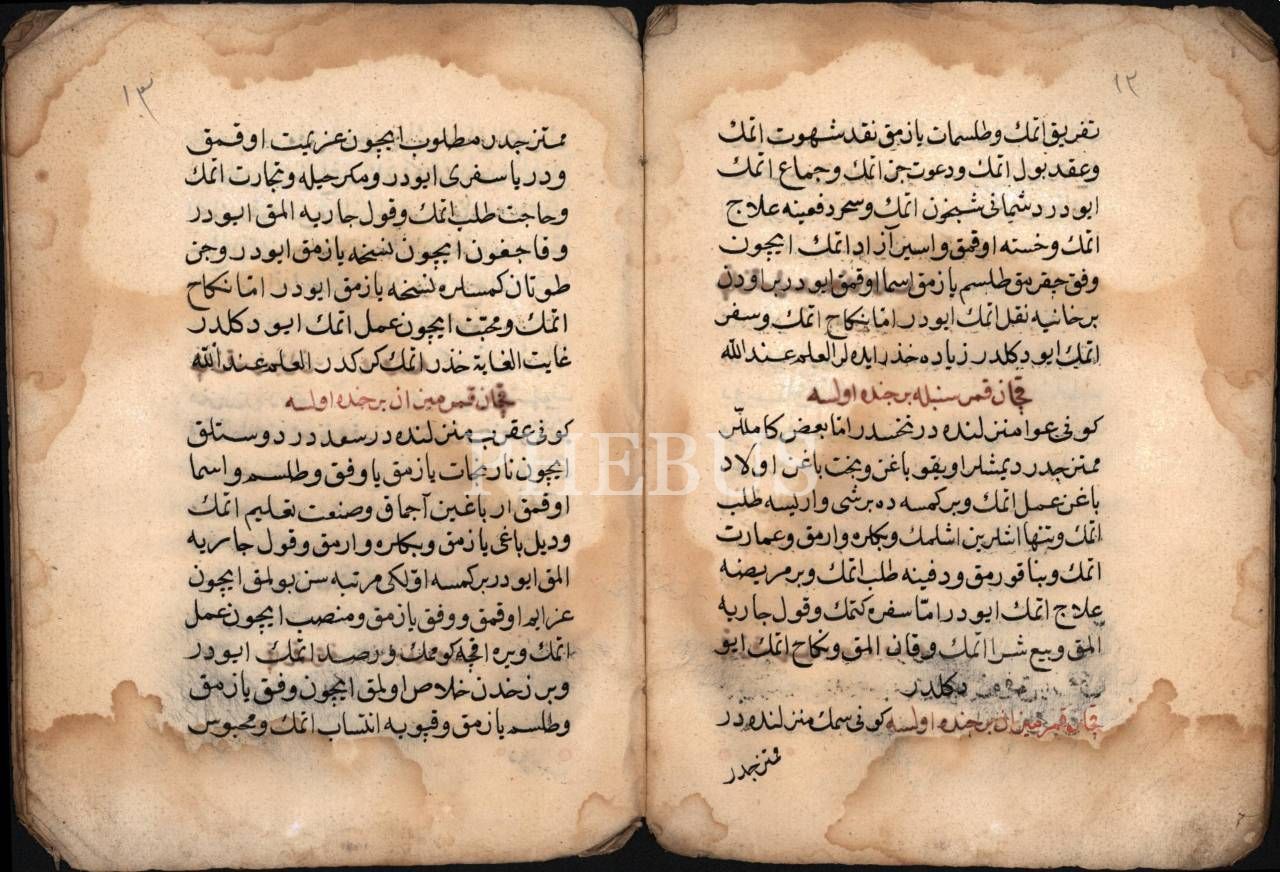 ١٢
تفریق اتمك وطلسمات یازمق نقد شهوت اتمك
وعقد بول اتمك ودعوت جن اتمك وجماع اتمك
ایودر دشمانی شبخون اتمك وسحر دفعینه علاج
اتمك وخسته اوقمق واسیر آزاد اتمك ایچون
وفق چقرمق طلسم یازمق اسما اوقمق ایودر بر اودن
بر خانیه نقل اتمك ایودر اما نكاح اتمك وسفر
اتمك ایو دكلدر زیاده حذر ایده لر العلم عند الله
قچان قمر سنبله برجنده اولسه
كونی عوا منزلنده در نحسدر اما بعض كاملر
ممتزجدر دیمشلر اویقو باغن وبخت باغن اولاد
باغن عمل اتمك وبر كمسه ده بر شی وار ایسه طلب
اتمك وتنها اشلرین اشلمك وبكلره وارمق وعمارت
اتمك وبنا قورمق ودفینه طلب اتمك وبر مریضه
علاج اتمك ایودر اما سفره كتمك وقول جاریه
المق وبیع شرا اتمك وقان المق ونكاح اتمك ایو
دكلدر
قچان قمر میزان برجنده اولسه كونی سمك منزلنده در
ممتزجدر
١٣
ممتزجدر مطلوب ایچون عزیمت اوقمق
ودریا سفری ایودر ومكر حیله وتجارت اتمك
وحاجت طلب اتمك وقول جاریه المق ایودر
وقاجغون ایچون نسخه یازمق ایودر وجن
طوتان كمسلره نسخه یازمق ایودر اما نكاح
اتمك ومحبت ایچون عمل اتمك ایو دكلدر
غایت الغایة حذر اتمك كركدر العلم عند الله
قچان قمر میزان برجنده اولسه
كونی عقرب منزلنده در سعددر دوستلق
ایچون نارنجات یازمق یا وفق وطلسم واسما
اوقمق ار باغین آچماق وصنعت تعلیم اتمك
ودیل باغی یازمق وبكلره وارمق وقول جاریه
المق ایودر بر كمسه اولكی مرتبه سن بولمق ایچون
عزایم اوقمق ووفق یازمق ومنصب ایچون عمل
اتمك ویره اقچه كوممك ورصد اتمك ایودر
وبر زخدن خلاص اولمق ایچون وفق یازمق
وطلسم یازمق وقپویه انتساب اتمك ومحبوس
PHEBUS